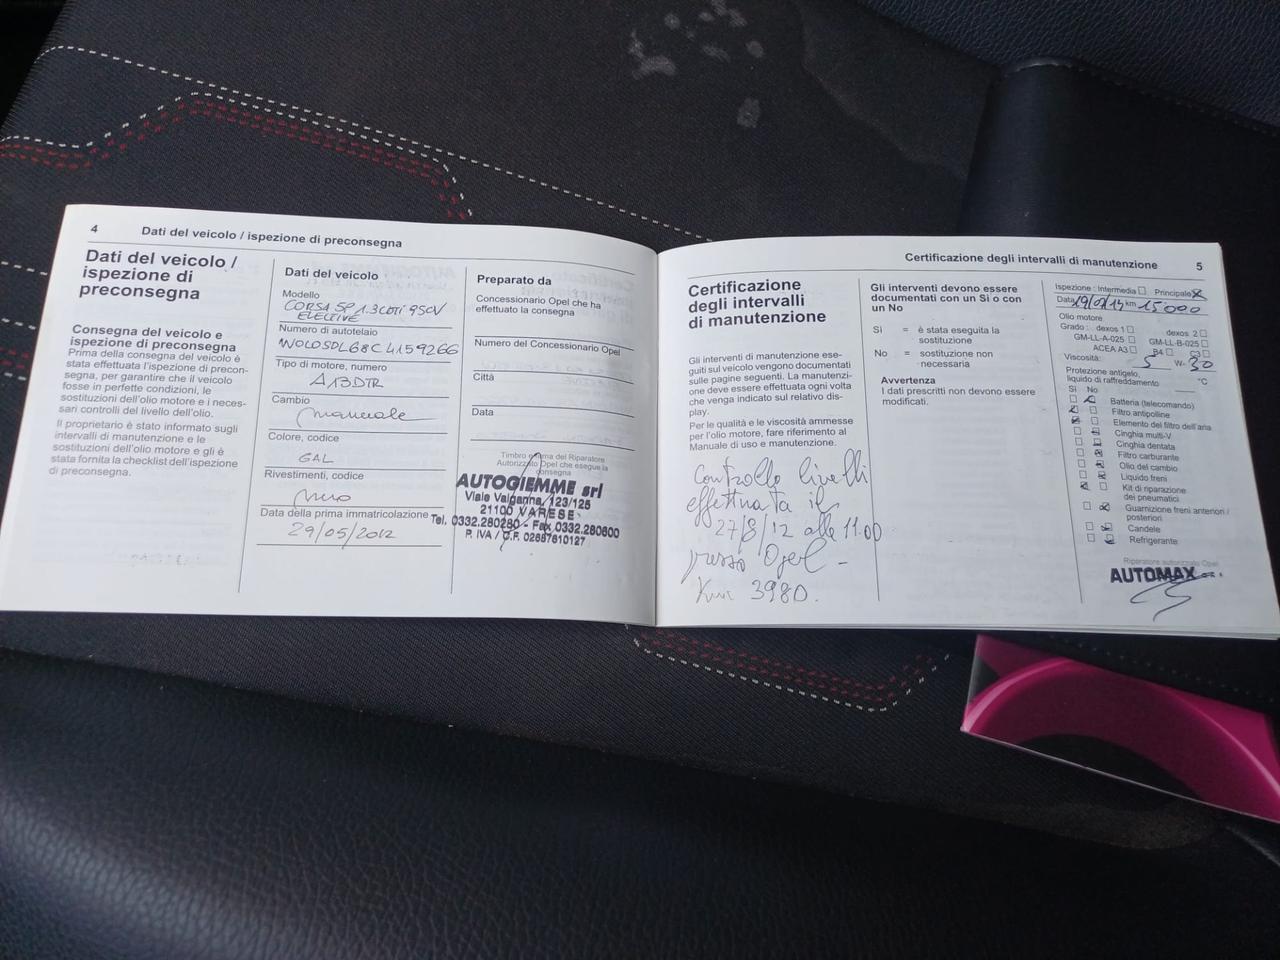 4 Dati del veicolo / ispezione di preconsegna
Dati del veicolo /
ispezione di
preconsegna
Consegna del veicolo e
ispezione di preconsegna
Prima della consegna del veicolo è
stata effettuata l'ispezione di precon-
segna, per garantire che il veicolo
fosse in perfette condizioni, le
sostituzioni dell'olio motore e i neces-
sari controlli del livello dell'olio.
Il proprietario è stato informato sugli
intervalli di manutenzione e le
sostituzioni dell'olio motore e gli è
stata fornita la checklist dell'ispezione
di preconsegna.
Dati del veicolo
Modello
CORSA 5P 1.3CDTI 95CV
ELECTIVE
Numero di autotelaio
W0L0SDL68C4159266
Tipo di motore, numero
A13DTR
Cambio
manuale
Colore, codice
GAL
Rivestimenti, codice
Data della prima immatricolazione
29/05/2012
Preparato da
Concessionario Opel che ha
effettuato la consegna
Numero del Concessionario Opel
Città
Data
Timbro e firma del Riparatore
Autorizzato Opel che esegue la
consegna
AUTOGIEMME srl
Viale Valganna, 123/125
21100 VARESE
Tel. 0332.280280 - Fax 0332.280600
P. IVA / C.F. 02687610127
Certificazione degli intervalli di manutenzione 5
Certificazione
degli intervalli
di manutenzione
Gli intervalli di manutenzione ese-
guiti sul veicolo vengono documentati
sulle pagine seguenti. La manutenzi-
one deve essere effettuata ogni volta
che venga indicato sul relativo dis-
play.
Per le qualità e le viscosità ammesse
per l'olio motore, fare riferimento al
Manuale di uso e manutenzione.
Controllo livelli
effettuata il
27/8/12 alle 11.00
presso Opel -
Km 3980.
Gli interventi devono essere
documentati con un Sì o con
un No
Sì = è stata eseguita la
sostituzione
No = sostituzione non
necessaria
Avvertenza
I dati prescritti non devono essere
modificati.
Ispezione : Intermedia Principale
Data km 15000
Olio motore
Grado : dexos 1 dexos 2
GM-LL-A-025 GM-LL-B-025
ACEA A3 B4 C3
Viscosità: 5 W- 30
Protezione antigelo,
liquido di raffreddamento °C
Sì No
Batteria (telecomando)
Filtro antipolline
Elemento del filtro dell'aria
Cinghia multi-V
Cinghia dentata
Filtro carburante
Olio del cambio
Liquido freni
Kit di riparazione
dei pneumatici
Guarnizione freni anteriori /
posteriori
Candele
Refrigerante
Riparatore autorizzato Opel
AUTOMAX